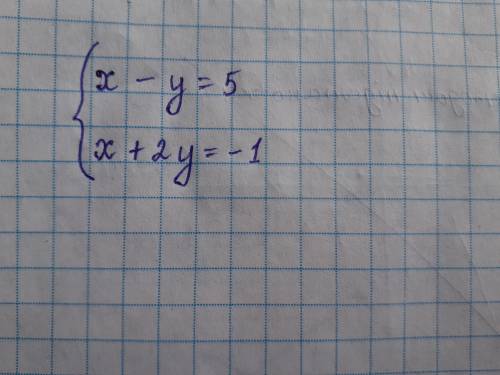 x - y = 5
x + 2y = -1